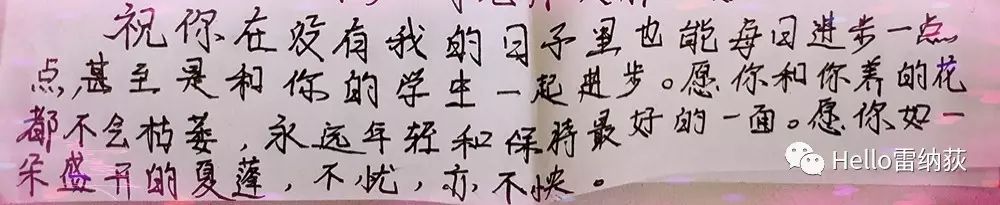 祝你在没有我的日子里也能每日进步一点
点,甚至是和你的学生一起进步。愿你和你养的花
都不会枯萎,永远年轻和保持最好的一面。愿你如一
朵盛开的夏莲,不忧,亦不怏。
Hello雷纳荻